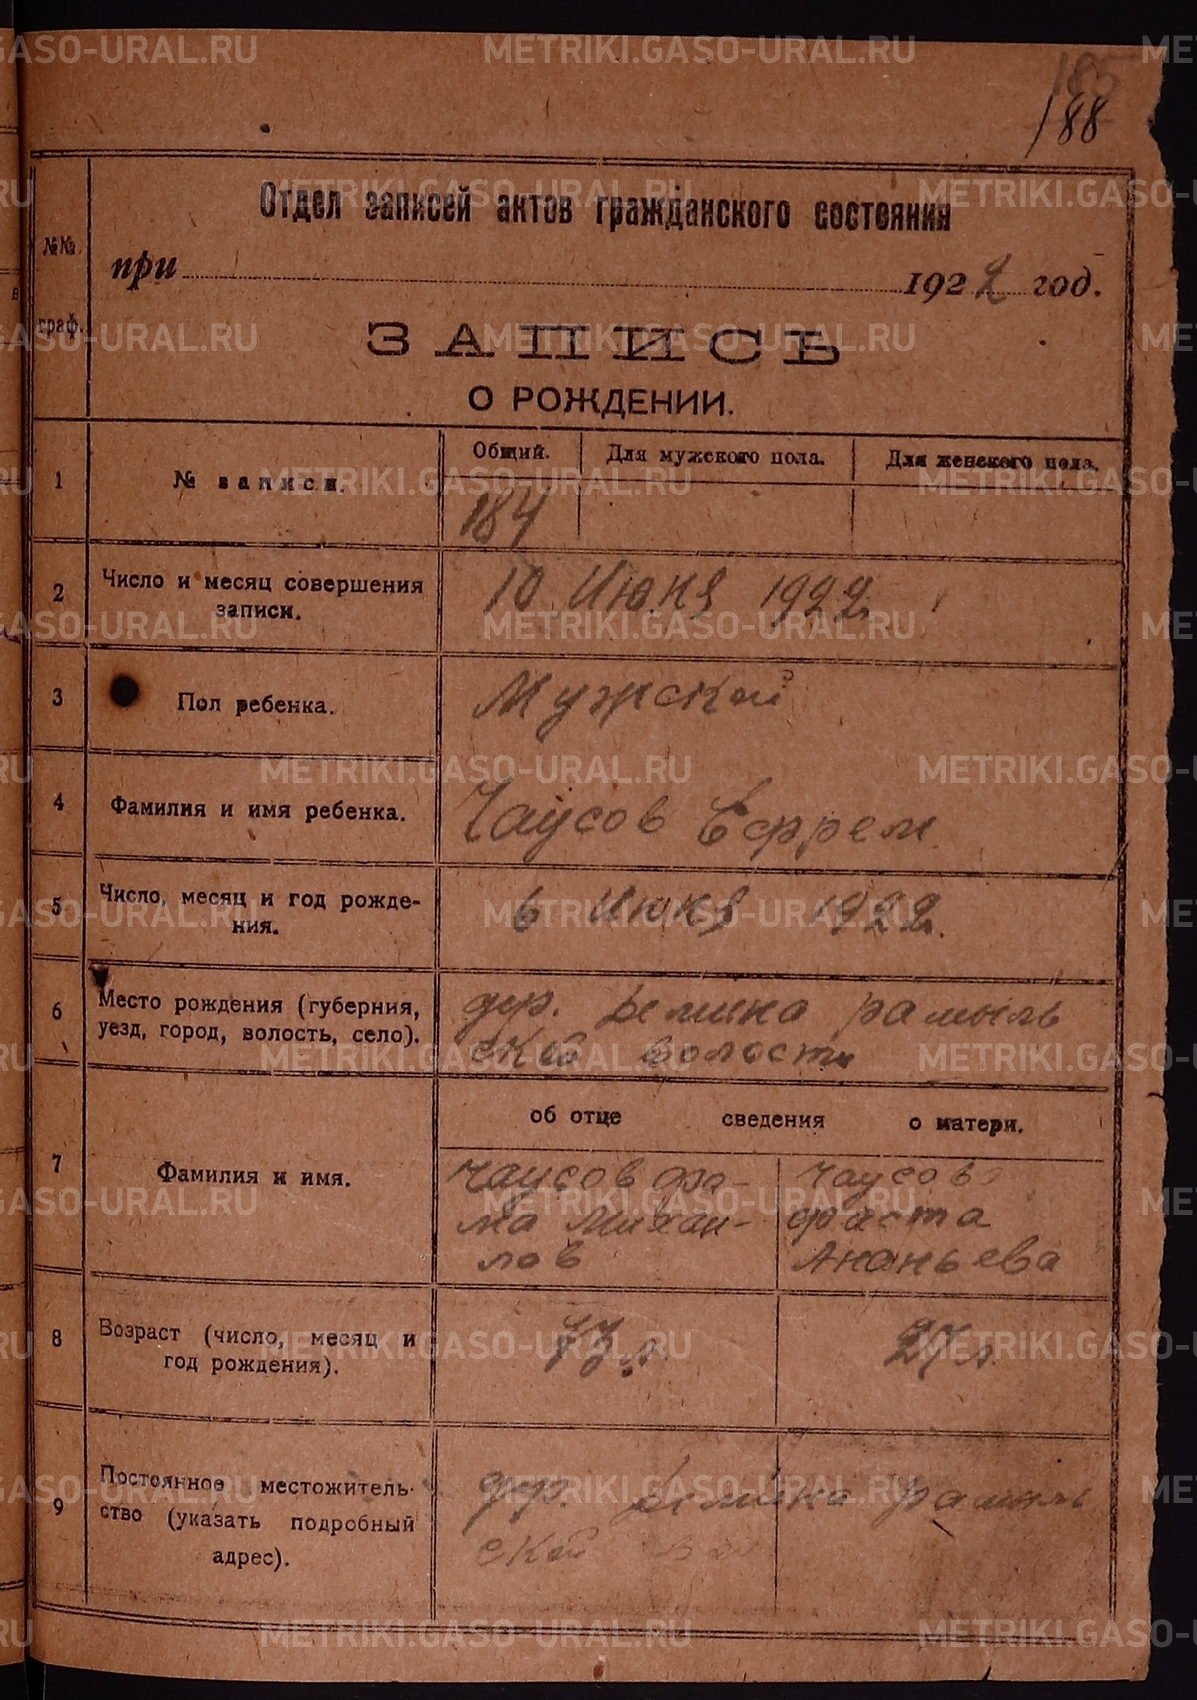 185
188
№№
граф.
Отдел записей актов гражданского состояния
при 1922 год.
ЗАПИСЬ
О РОЖДЕНИИ.
1
№ записи.
Общий.
Для мужского пола.
Для женского пола.
184
2
Число и месяц совершения
записи.
10 Июня 1922
3
Пол ребенка.
Мужской
4
Фамилия и имя ребенка.
Чаусов Ефрем
5
Число, месяц и год рожде-
ния.
6 Июня 1922
6
Место рождения (губерния,
уезд, город, волость, село).
дер. рамыль
ской волости
об отце сведения о матери.
7
Фамилия и имя.
Чаусов фо-
ма Михаи-
лов
Чаусова
Ананьева
8
Возраст (число, месяц и
год рождения).
27 л
9
Постоянное местожитель-
ство (указать подробный
адрес).
дер. рамыль
ской
METRIKI.GASO-URAL.RU